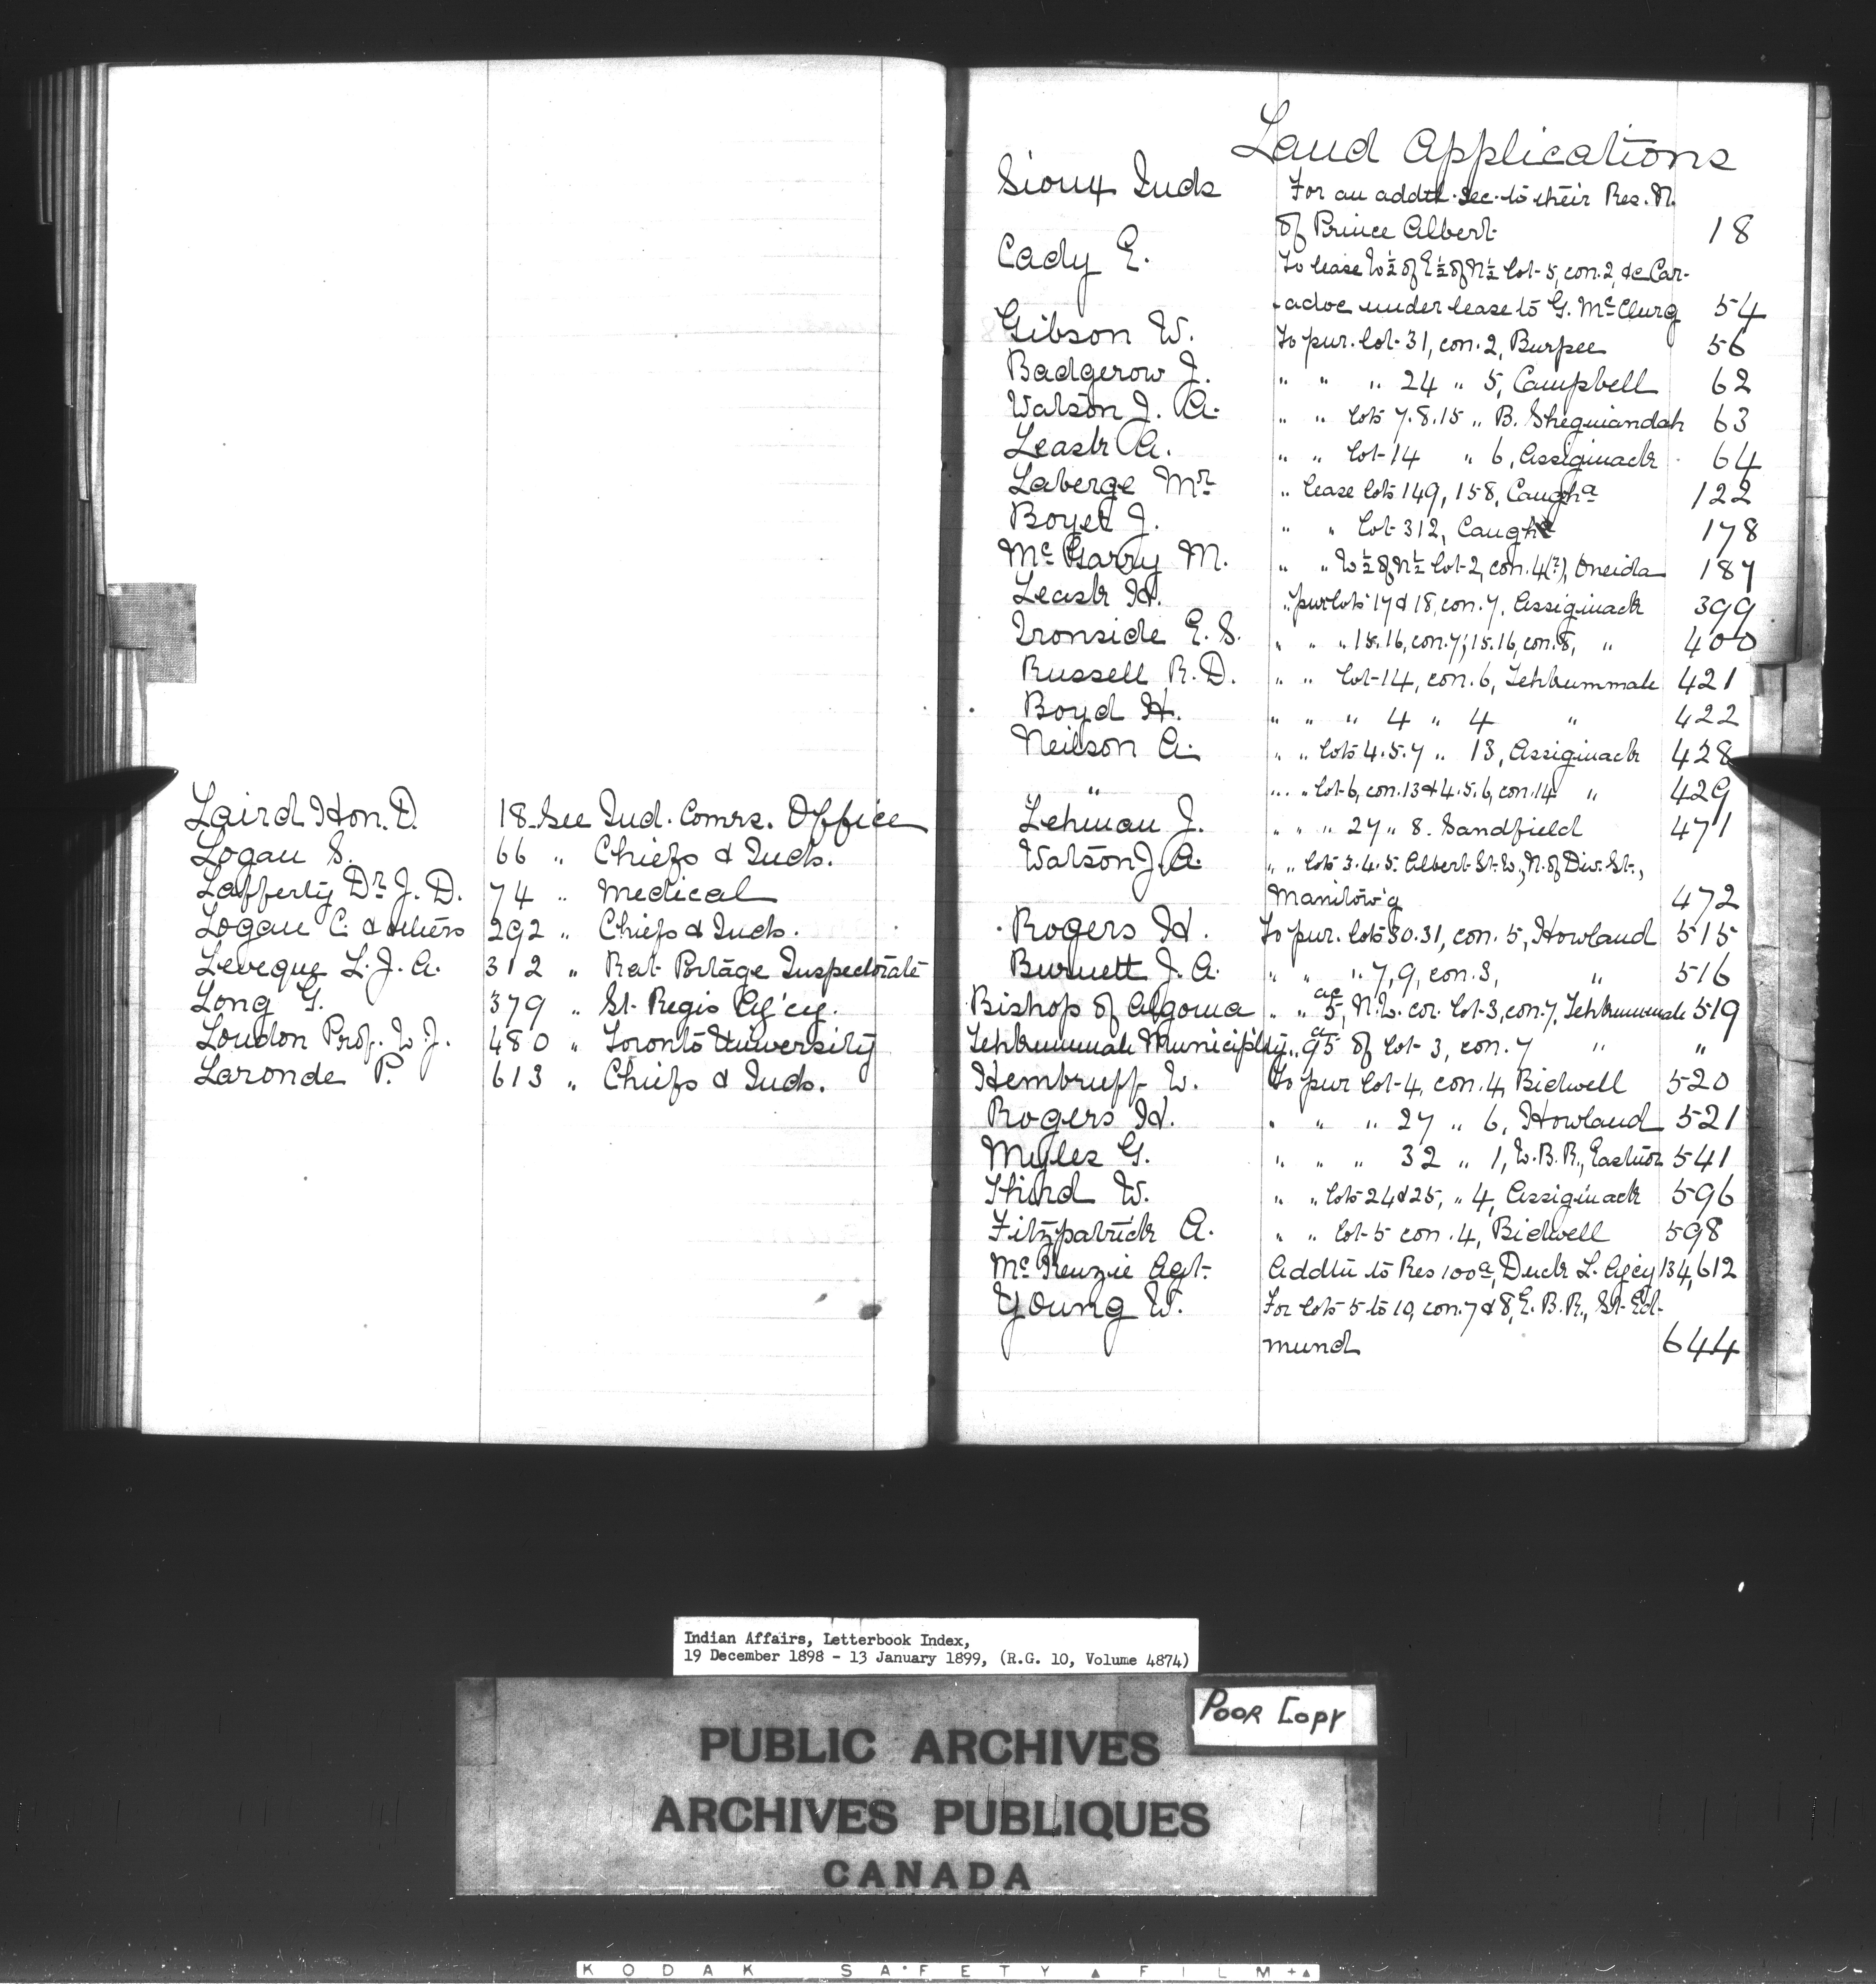 Laird Hon. D. 18 See Ind. Comrs. Office
Logan S. 66 " Chiefs & Inds.
Lafferty Dr. J. D. 74 " Medical
Logan C. & others 292 " Chiefs & Inds.
Leveque L. J. A. 312 " Rat Portage Inspectorate
Long G. 379 " St. Regis Ag'cy.
Loudon Prof. W. J. 480 " Toronto University
Laronde P. 613 " Chiefs & Inds.
Land Applications
Sioux Inds For an addtl. sec. to their Res. N.
of Prince Albert 18
Cady E. To lease W½ of E½ of N½ lot 5, con. 2, &c Car-
adoc under lease to G. McClurg 54
Gibson W. To pur. lot 31, con. 2, Burpee 56
Badgerow J. " " " 24 " 5, Campbell 62
Watson J. A. " " lots 7.8.15 " B. Sheguiandah 63
Leask A. " " lot 14 " 6, Assiginack 64
Laberge Mr. " lease lots 149, 158, Caugha 122
Boyer J. " " lot 312, Caugha 178
McGarry M. " " W½ of N½ lot 2, con. 4(?), Oneida 187
Leask H. " pur lots 17 & 18, con. 7, Assiginack 399
Ironside E. S. " " " 15.16, con. 7; 15.16, con. 8, " 400
Russell R. D. " " lot 14, con. 6, Tehkummah 421
Boyd H. " " " 4 " 4 " 422
Neilson A. " " lots 4.5.7 " 13, Assiginack 428
" " " lot 6, con. 13 & 4.5.6, con. 14 " 429
Lehman J. " " " 27 " 8. Sandfield 471
Watson J. A. " " lots 3.4.5. Albert St. W., N. of Div. St.,
Manitow'g 472
Rogers H. To pur. lots 30.31, con. 5, Howland 515
Burnett J. A. " " " 7, 9, con. 3, " 516
Bishop of Algoma " " 5 ac, N.W. cor. lot 3, con. 7, Tehkummah 519
Tehkummah Municip'lty " 95 a of lot 3, con. 7 " "
Hembruff W. To pur lot 4, con. 4, Bidwell 520
Rogers H. " " " 27 " 6, Howland 521
Myles G. " " " 32 " 1, W.B.R., Eastnor 541
Hind W. " " lots 24 & 25, " 4, Assiginack 596
Fitzpatrick A. " " lot 5 con. 4, Bidwell 598
McKenzie Agt. Addtn to Res 100a, Duck L. Ag'cy 134, 612
Young W. For lots 5 to 10, con. 7 & 8, E. B. R., St. Ed-
mund 644
Indian Affairs, Letterbook Index,
19 December 1898 - 13 January 1899, (R.G. 10, Volume 4874)
POOR COPY
PUBLIC ARCHIVES
ARCHIVES PUBLIQUES
CANADA
KODAK SAFETY FILM